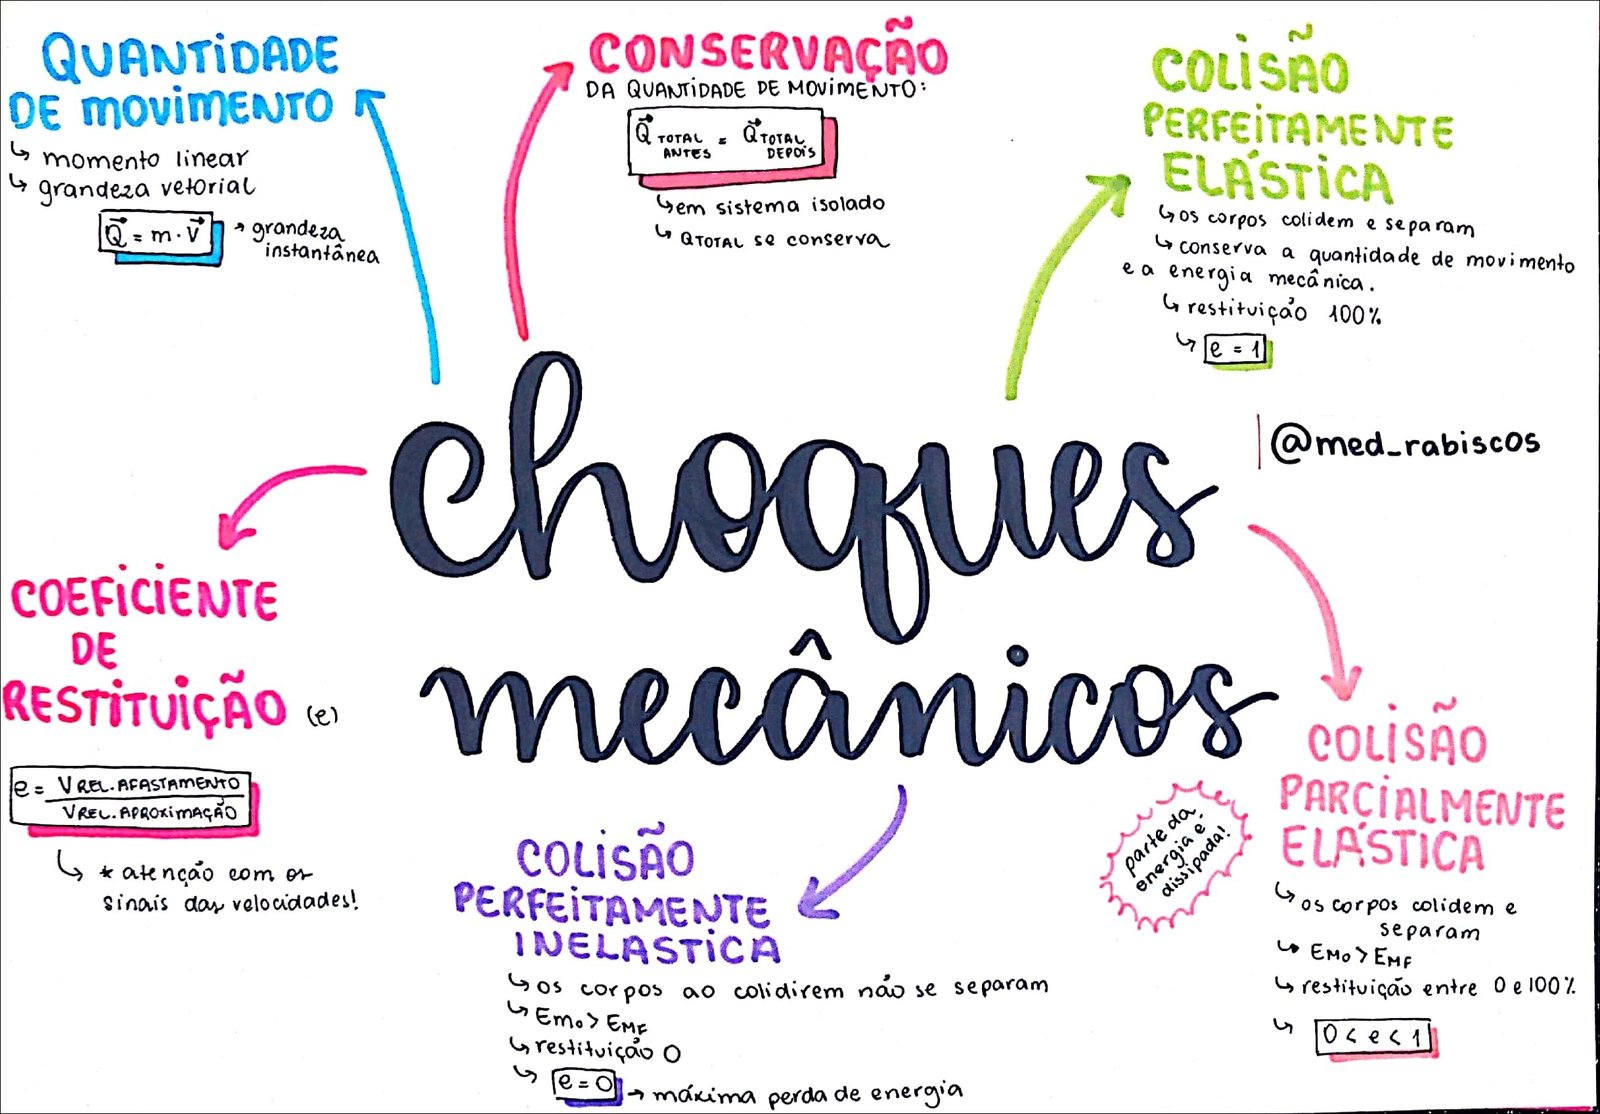 QUANTIDADE
DE MOVIMENTO
↳ momento linear
↳ grandeza vetorial
Q⃗ = m · V⃗
→ grandeza
instantânea
CONSERVAÇÃO
DA QUANTIDADE DE MOVIMENTO:
Q⃗ TOTAL ANTES = Q⃗ TOTAL DEPOIS
↳ em sistema isolado
↳ QTOTAL se conserva
COLISÃO
PERFEITAMENTE
ELÁSTICA
↳ os corpos colidem e separam
↳ conserva a quantidade de movimento
e a energia mecânica.
↳ restituição 100%
↳ e = 1
@med_rabiscos
choques
mecânicos
COEFICIENTE
DE
RESTITUIÇÃO (e)
e = VREL. AFASTAMENTO
VREL. APROXIMAÇÃO
↳ * atenção com os
sinais das velocidades!
COLISÃO
PERFEITAMENTE
INELASTICA
↳ os corpos ao colidirem não se separam
↳ EM₀ > EMF
↳ restituição 0
↳ e = 0 → máxima perda de energia
parte da
energia é
dissipada!
COLISÃO
PARCIALMENTE
ELÁSTICA
↳ os corpos colidem e
separam
↳ EM₀ > EMF
↳ restituição entre 0 e 100%
↳ 0 < e < 1